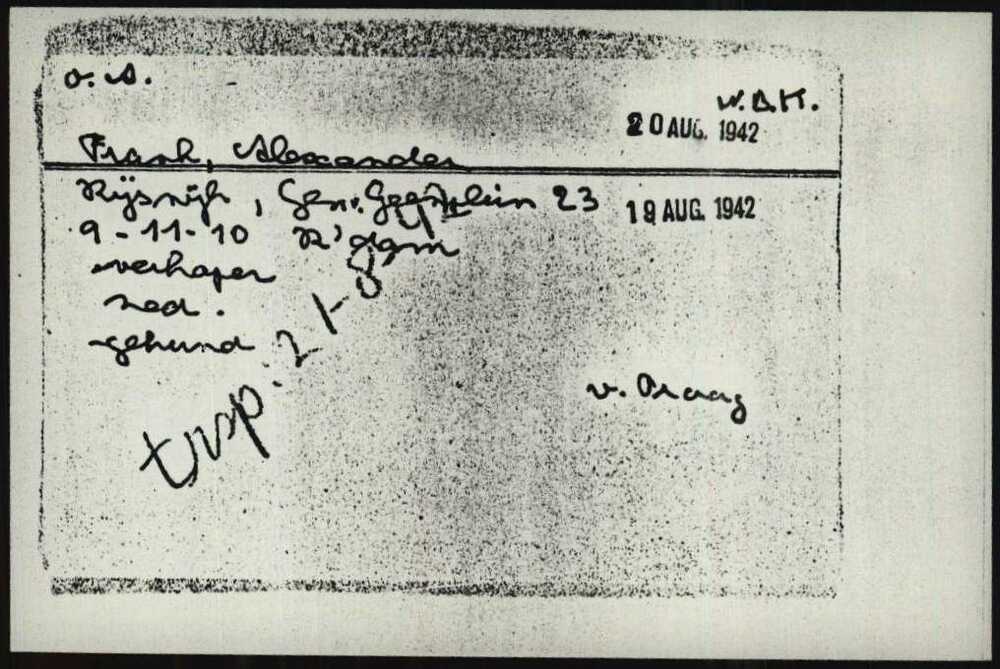 o. A.
W.B.K.
20 AUG. 1942
Frank, Alexander
Rijswijk, Gen. 23
19 AUG. 1942
9-11-10 R'dam
verkoper
ned.
gehuwd
trsp. 21-8
v. Praag